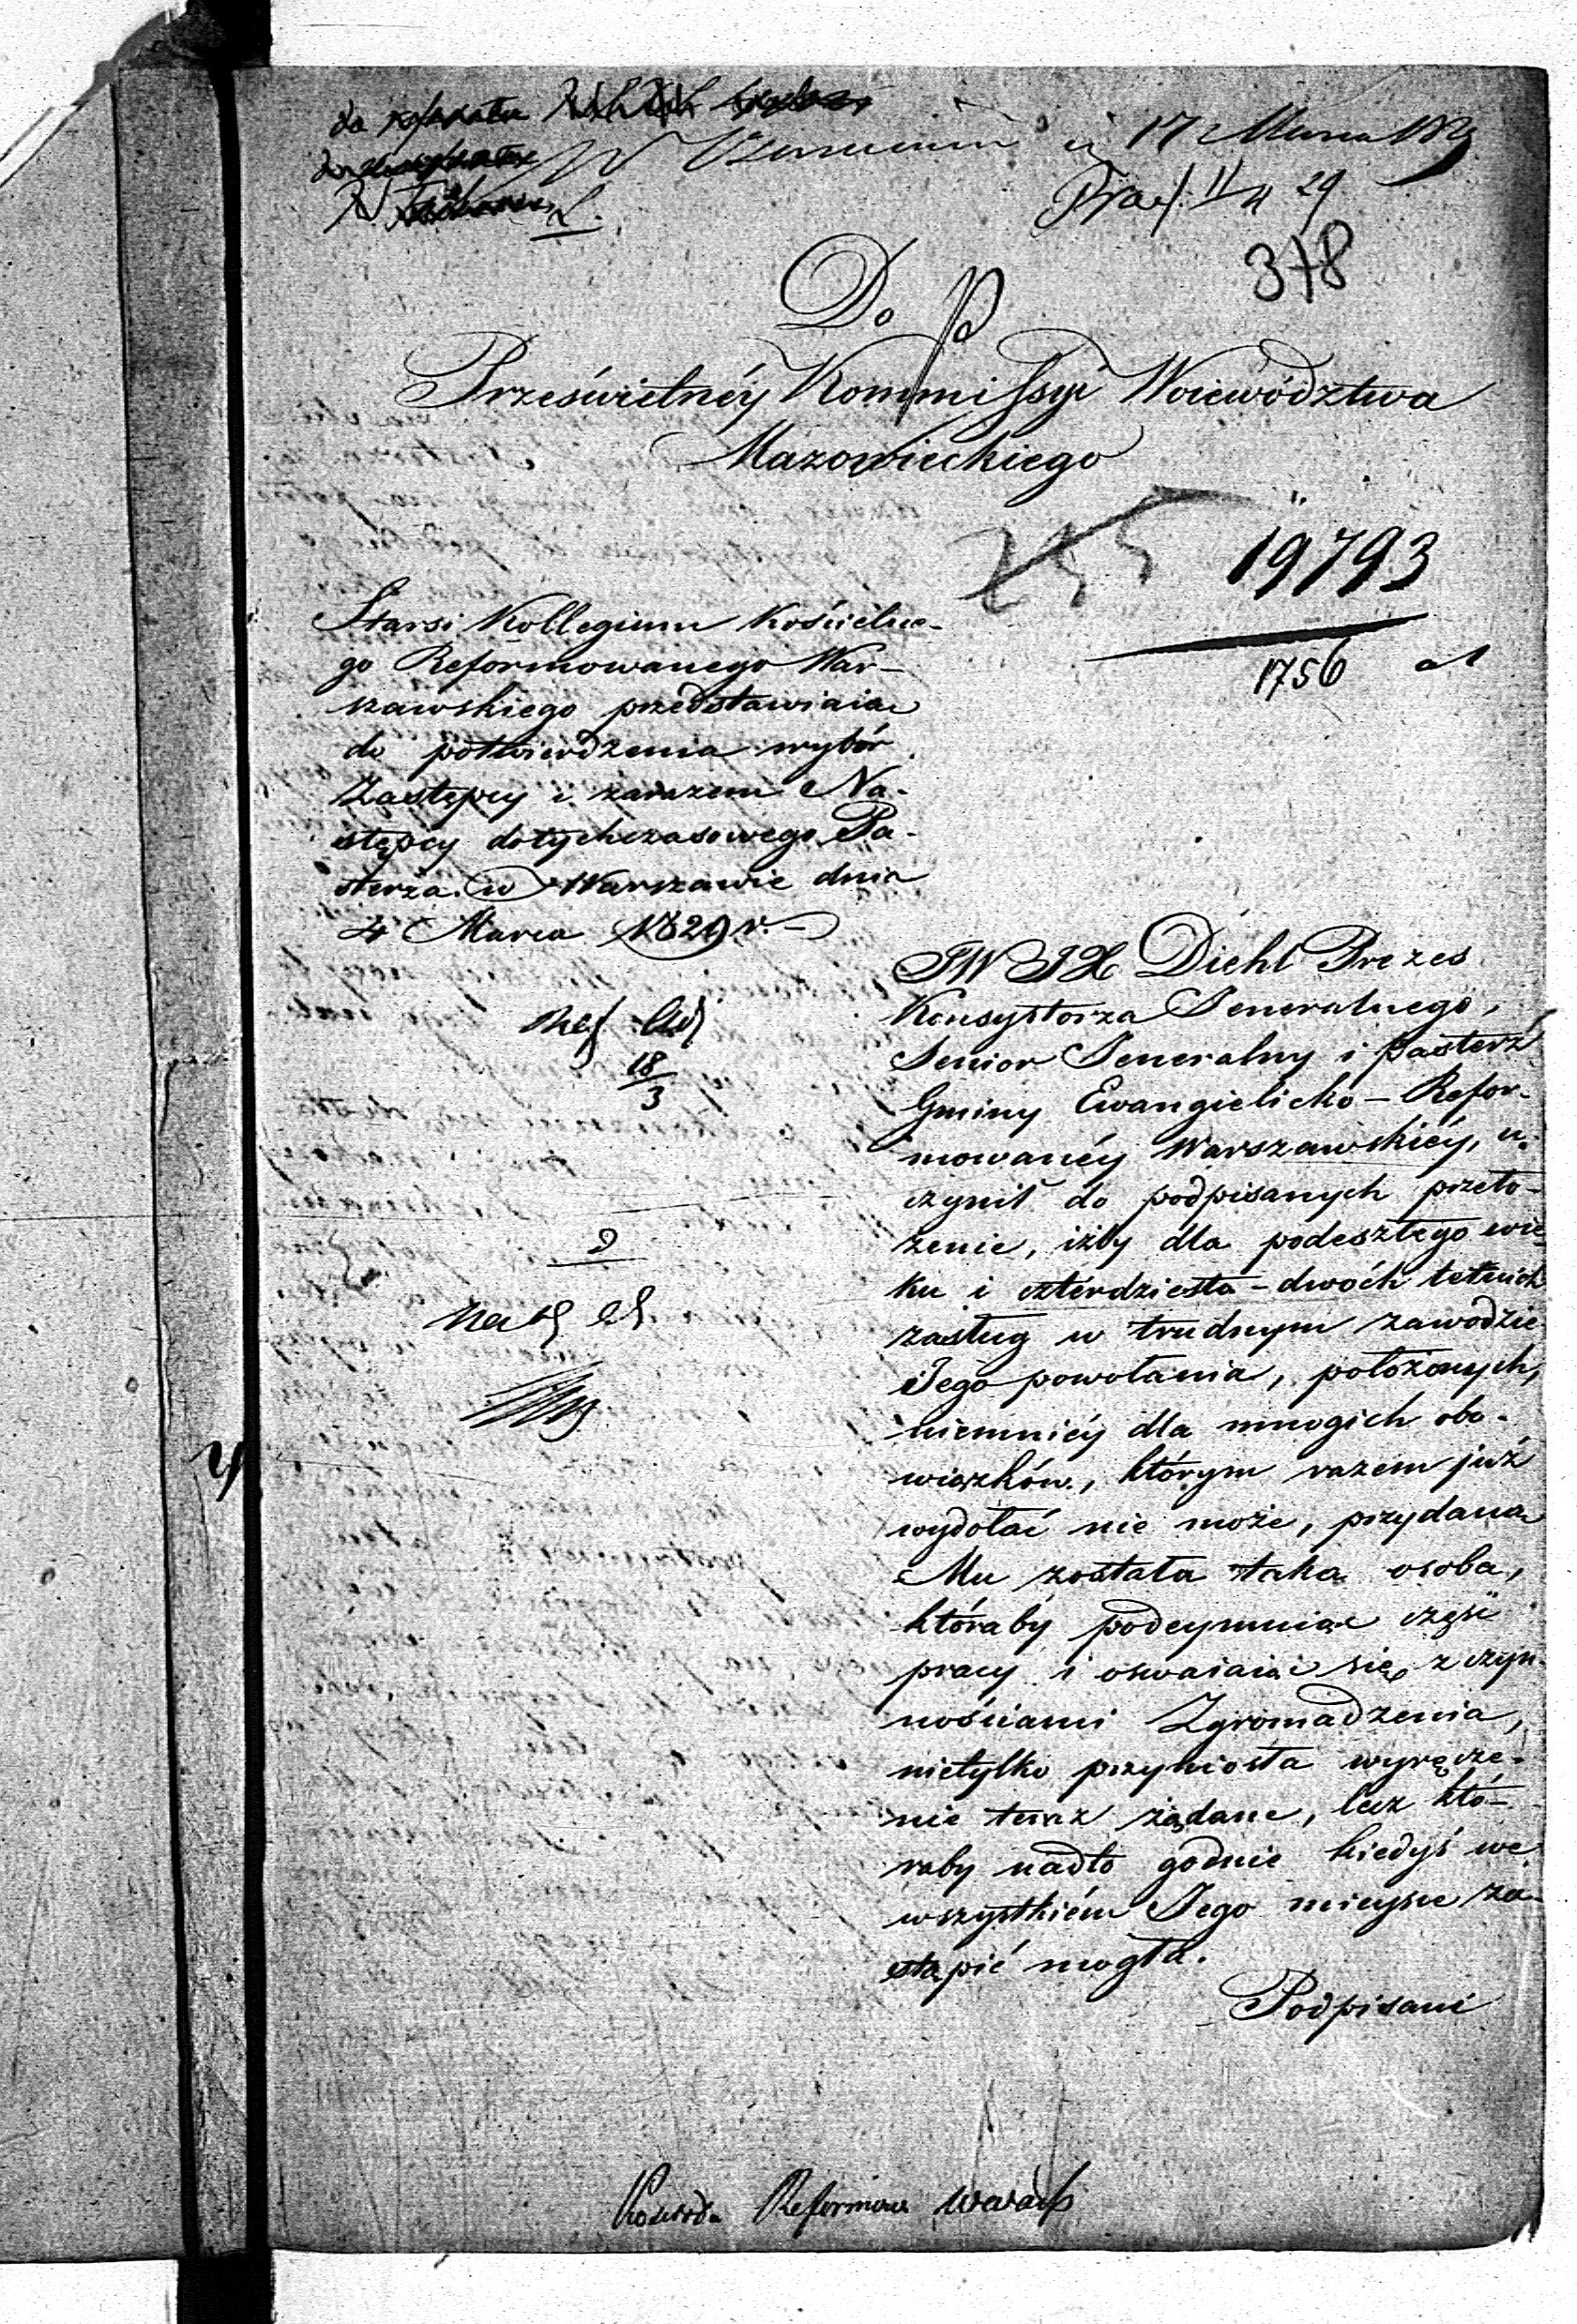 do referatu
17 Marca 1829
378
Do
Prześwietnéy Kommissyi Woiewództwa
Mazowieckiego
19793
1756
Starsi Kollegium Kościelne-
go Reformowanego War-
szawskiego przedstawiaią
do potwierdzenia wybór
Zastępcy i zarazem Na-
stępcy dotychczasowego Pa-
sterza. w Warszawie dnia
4 Marca 1829 r.
18
3
JW JX Diehl Prezes
Konsystorza Jeneralnego,
Senior Jeneralny i Pasterz
Gminy Ewangielicko-Refor-
mowanéy Warszawskiéy, u-
czynił do podpisanych przeło-
żenie, iżby dla podeszłego wie-
ku i czterdziesta-dwóch letnich
zasług w trudnym zawodzie
Jego powołania, położonych,
niemniéy dla mnogich obo-
wiązków, którym razem już
wydołać nie może, przydana
Mu została taka osoba,
któraby podeymuiąc część
pracy i oswaiaiąc się z czyn-
nościami Zgromadzenia,
nietylko przyniosła wyręcze-
nie teraz żądane, lecz któ-
raby nadto godnie kiedyś we
wszystkiém Jego mieysce za-
stąpić mogła.
Podpisani
Reformow